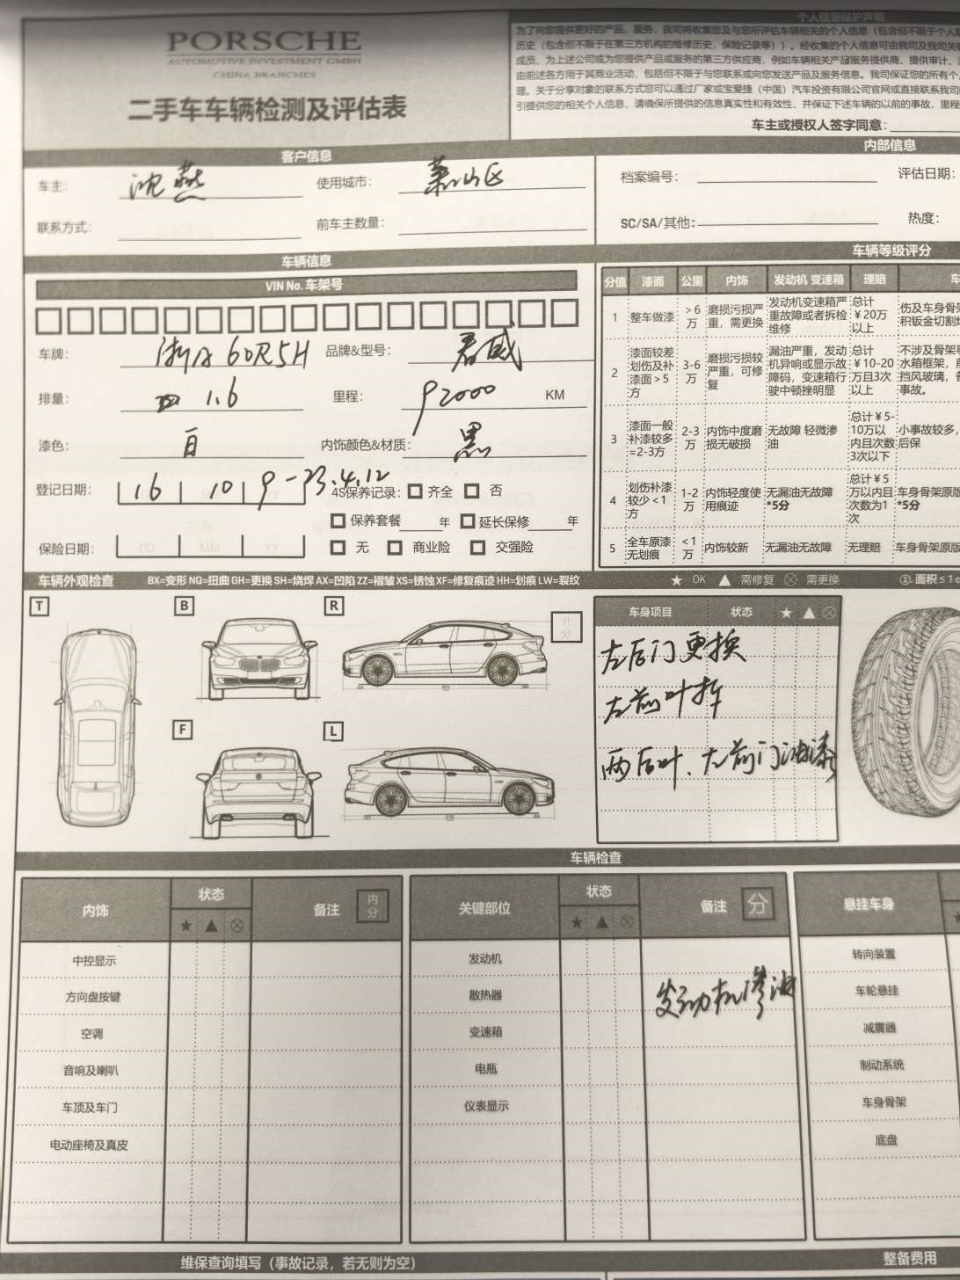 个人信息保护声明
PORSCHE
AUTOMOTIVE INVESTMENT GMBH
CHINA BRANCHES
二手车车辆检测及评估表
为了向您提供更好的产品、服务，我司将收集您及与您所评估车辆相关的个人信息（包含但不限于个人
历史（包含但不限于在第三方机构的维修历史，保险记录等））。经收集的个人信息可由我司及我司关
成员、为上述公司或为您提供产品或服务的第三方供应商，例如车辆相关产品服务提供商、提供审计、
由前述各方用于其商业活动，包括但不限于与您联系或向您发送产品及服务信息。我司保证您的所有个
理。关于分享对象的联系方式您可以通过厂家或宝爱捷（中国）汽车投资有限公司官网或直接联系我司
引提供您的相关个人信息，请确保所提供的信息真实性和有效性，并保证下述车辆的以前的事故，里程
车主或授权人签字同意：
客户信息
内部信息
车主： 沈燕 使用城市： 萧山区
档案编号： 评估日期：
联系方式： 前车主数量：
SC/SA/其他： 热度：
车辆信息
车辆等级评分
VIN No. 车架号
车牌： 浙A 60R5H 品牌&型号： 君威
排量： 1.6 里程： 92000 KM
漆色： 白 内饰颜色&材质： 黑
登记日期： 16 10 9 - 23.4.12 4S保养记录： 齐全 否
保养套餐 年 延长保修 年
保险日期： DD MM YY 无 商业险 交强险
分值 漆面 公里 内饰 发动机 变速箱 理赔 车
1 整车做漆 >6万 磨损污损严重，需更换 发动机变速箱严重故障或者拆检维修 总计￥20万以上 伤及车身骨架 积钣金切割
2 漆面较差划伤及补漆面>5方 3-6万 磨损污损较严重，可修复 漏油严重，发动机异响或显示故障码，变速箱行驶中顿挫明显 总计￥10-20万且3次以上 不涉及骨架 水箱框架， 挡风玻璃， 事故。
3 漆面一般补漆较多=2-3方 2-3万 内饰中度磨损无破损 无故障 轻微渗油 总计￥5-10万以内且次数3次以下 小事故较多， 后保
4 划伤补漆较少<1方 1-2万 内饰轻度使用痕迹 无漏油无故障*5分 总计￥5万以内且次数为1次 车身骨架原版*5分
5 全车原漆无划痕 <1万 内饰较新 无漏油无故障 无理赔 车身骨架原版
车辆外观检查 BX=变形 NQ=扭曲 GH=更换 SH=烧焊 AX=凹陷 ZZ=褶皱 XS=锈蚀 XF=修复痕迹 HH=划痕 LW=裂纹 ★ OK ▲ 需修复 ⊗ 需更换 ①. 面积≤1
T B R
外分
F L
车身项目 状态 ★ ▲ ⊗
左后门更换
左前叶拆
两后叶、左前门油漆
车辆检查
内饰 状态 ★ ▲ ⊗ 备注 内分
关键部位 状态 ★ ▲ ⊗ 备注 分
悬挂车身 ★
中控显示 发动机 转向装置
方向盘按键 散热器 发动机渗油 车轮悬挂
空调 变速箱 减震器
音响及喇叭 电瓶 制动系统
车顶及车门 仪表显示 车身骨架
电动座椅及真皮 底盘
维保查询填写（事故记录，若无则为空） 整备费用